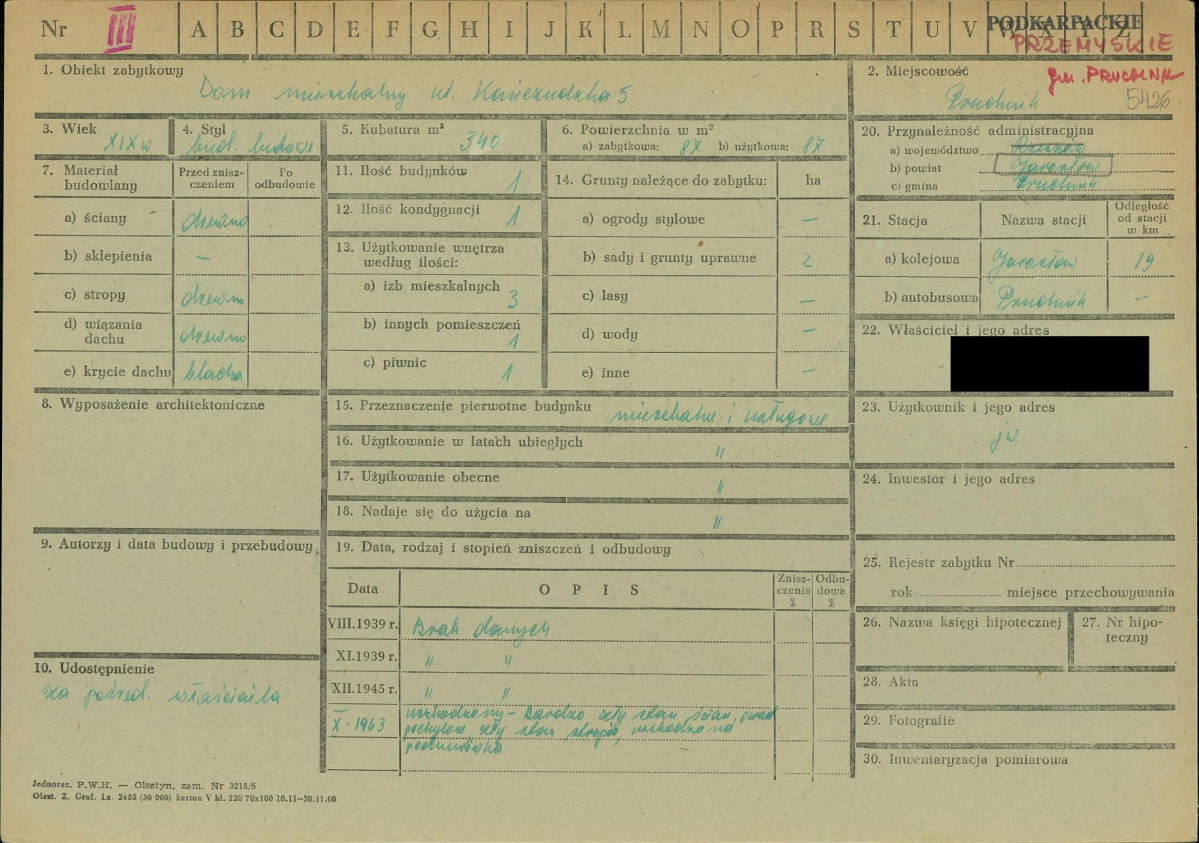 Nr III A B C D E F G H I J K L M N O P R S T U V W X Y Z
PODKARPACKIE
PRZEMYSKIE
gm. PRUCHNIK
1. Obiekt zabytkowy
Dom mieszkalny ul. Kańczudzka 5
2. Miejscowość
Pruchnik 5426
3. Wiek
XIX w
4. Styl
bud. ludowe
5. Kubatura m³
340
6. Powierzchnia w m²
a) zabytkowa: 87 b) użytkowa: 87
7. Materiał budowlany
Przed zniszczeniem
Po odbudowie
a) ściany drewno
b) sklepienia —
c) stropy drewno
d) wiązania dachu drewno
e) krycie dachu blacha
8. Wyposażenie architektoniczne
9. Autorzy i data budowy i przebudowy
10. Udostępnienie
za pośred. właściciela
11. Ilość budynków 1
12. Ilość kondygnacji 1
13. Użytkowanie wnętrza według ilości:
a) izb mieszkalnych 3
b) innych pomieszczeń 1
c) piwnic 1
14. Grunty należące do zabytku: ha
a) ogrody stylowe —
b) sady i grunty uprawne 2
c) lasy —
d) wody —
e) inne —
15. Przeznaczenie pierwotne budynku mieszkalne i usługowe
16. Użytkowanie w latach ubiegłych "
17. Użytkowanie obecne "
18. Nadaje się do użycia na "
19. Data, rodzaj i stopień zniszczeń i odbudowy
Data
OPIS
Zniszczenia %
Odbudowa %
VIII.1939 r. Brak danych
XI.1939 r. " "
XII.1945 r. " "
X. 1963 uszkodzony - Bardzo zły stan ścian,
zły stan stropów, uszkodzona
podmurówka
20. Przynależność administracyjna
a) województwo Rzeszów
b) powiat Jarosław
c) gmina Pruchnik
21. Stacja
Nazwa stacji
Odległość od stacji w km
a) kolejowa Jarosław 19
b) autobusowa Pruchnik —
22. Właściciel i jego adres
23. Użytkownik i jego adres
jw.
24. Inwestor i jego adres
25. Rejestr zabytku Nr
rok miejsce przechowywania
26. Nazwa księgi hipotecznej
27. Nr hipoteczny
28. Akta
29. Fotografie
30. Inwentaryzacja pomiarowa
Jednoraz. P.W.H. — Olsztyn, zam. Nr 3215/S
Olszt. Z. Graf. Lz. 2485 (30 000) karton V kl. 220 70x100 10.11—30.11.60